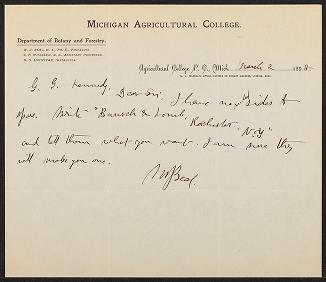 MICHIGAN AGRICULTURAL COLLEGE.
Department of Botany and Forestry.
W. J. BEAL, M. S., PH. D., PROFESSOR.
Agricultural College P. O., Mich. March 2 189
G. G. Kennedy,
Dear Sir: I have no slides to
spare. Write "Bausch & Lomb,
Rochester N.Y."
and tell them what you want. I am sure they
will make you one.
W J Beal.